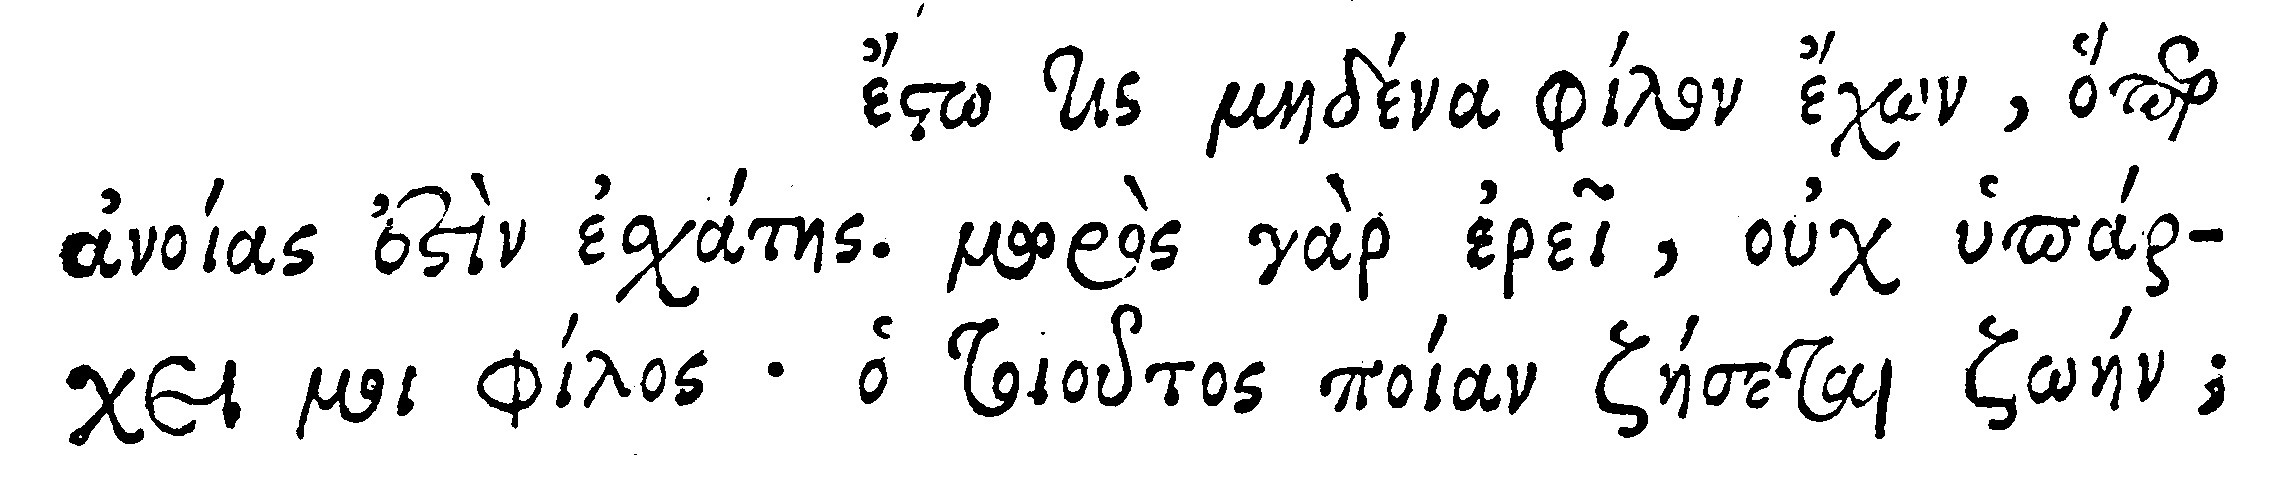 ἔστω τις μηδένα φίλον ἔχων, ὅπερ
ἀνοίας ἐστὶν ἐσχάτης. μωρὸς γὰρ ἐρεῖ, οὐχ ὑπάρ-
χει μοι φίλος· ὁ τοιοῦτος ποίαν ζήσεται ζωήν;